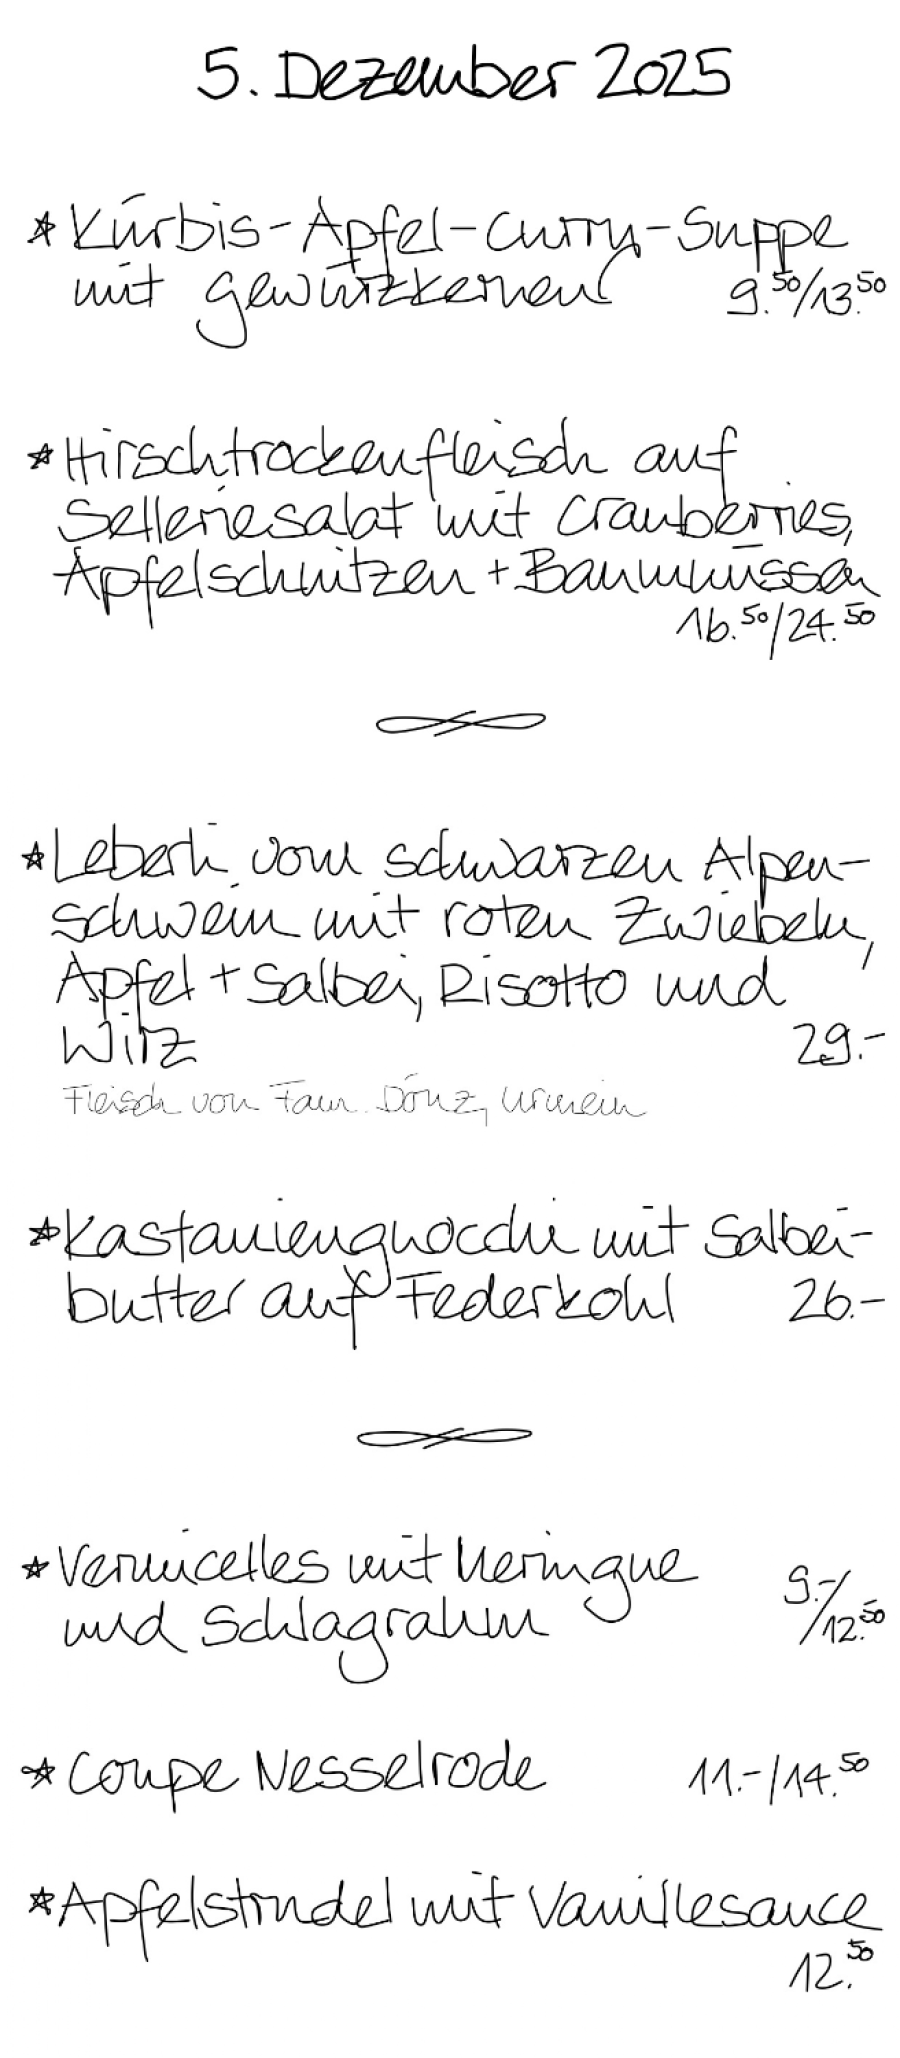 5. Dezember 2025
* Kürbis-Apfel-Curry-Suppe
mit Gewürzkernen 9.50/13.50
* Hirschtrockenfleisch auf
Selleriesalat mit Cranberries,
Apfelschnitzen + Baumnüssen
16.50/24.50
* Leberli vom schwarzen Alpen-
schwein mit roten Zwiebeln,
Apfel + Salbei, Risotto und
Wirz 29.-
Fleisch von Fam. Dönz, Urmein
* Kastaniengnocchi mit Salbei-
butter auf Federkohl 26.-
* Vermicelles mit Meringue
und Schlagrahm 9.-/12.50
* Coupe Nesselrode 11.-/14.50
* Apfelstrudel mit Vanillesauce
12.50